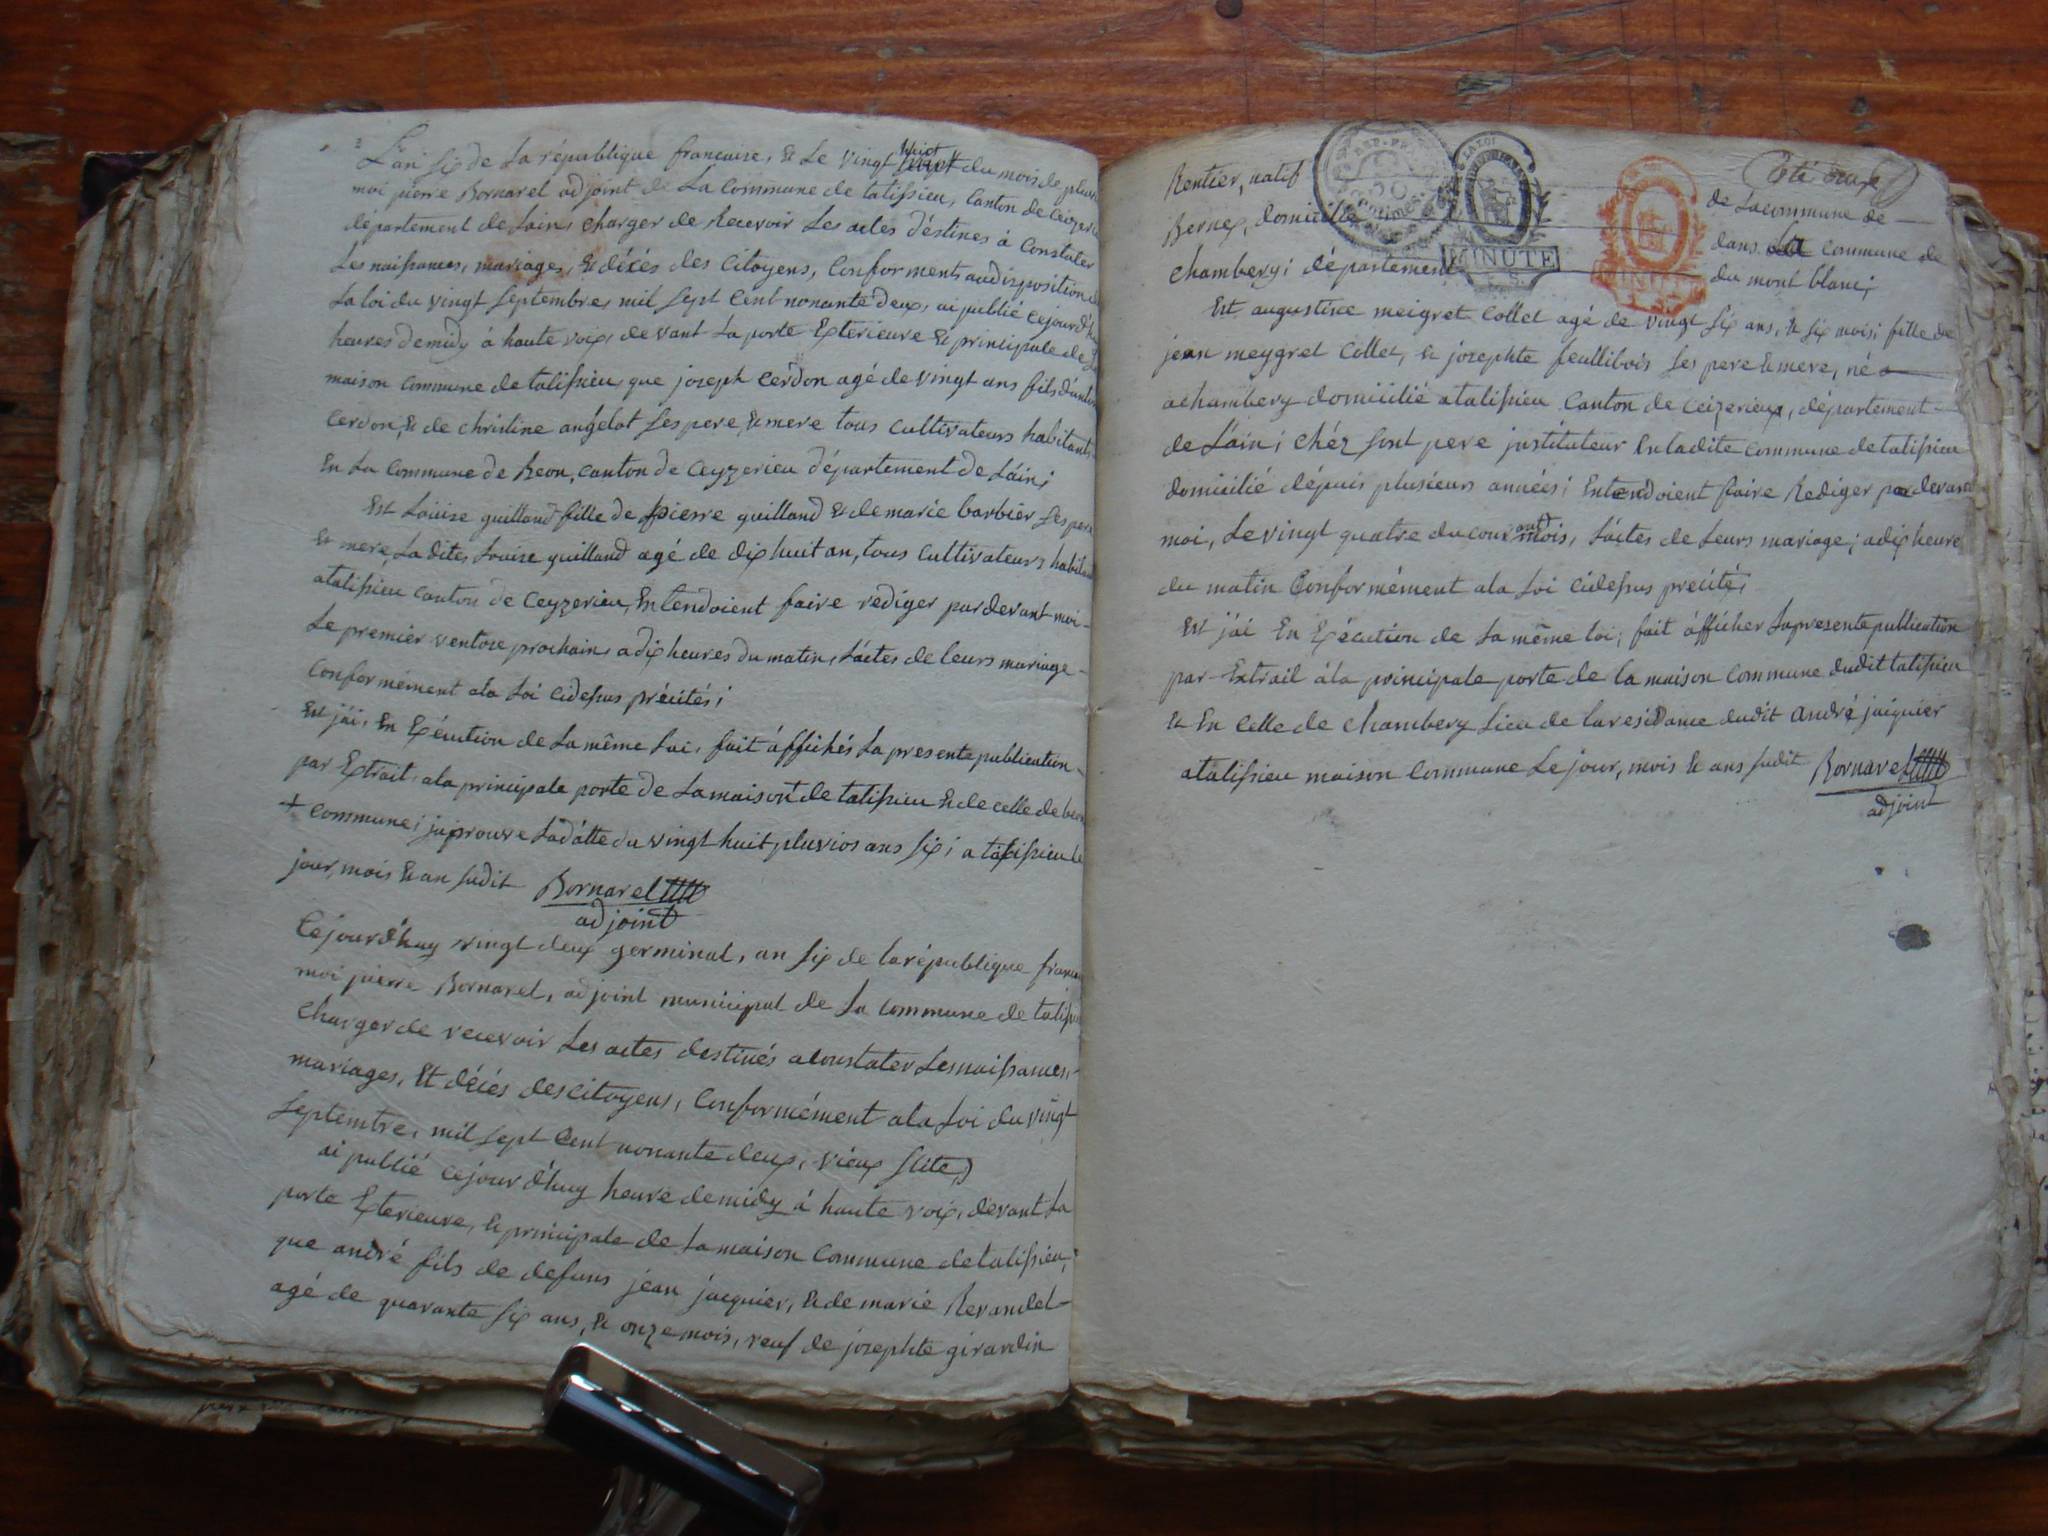 L'an six de la république francaise, & le vingt huit du mois de pluvi
moi pierre Bornarel adjoint de la commune de talissieu, canton de Ceyzerieu
département de Lain, charger de Recevoir les actes déstines à Constater
Les naissances, mariages, & décés des Citoyens, Conforments audisposition de
La loi du vingt septembre, mil sept cent nonante deux, ai publié cejourd'hui
heures de midy à haute voix, devant la porte Exterieure & principale de la
maison commune de talissieu, que joseph cerdon agé de vingt ans fils d'antoi
cerdon, & de christine angelot ses pere, & mere tous cultivateurs habitants
En La Commune de Beon, canton de Ceyzerieu département de Láin;
Est Louise guilland fille de pierre guilland & de marie barbier, ses pere
& mere, La dites Louise guilland agé de dix huit an, tous cultivateurs habitant
atalissieu canton de Ceyzerieu, Entendoient faire rediger pardevant moi
Le premier ventose prochain, a dix heures du matin, Láctes de leurs mariage
conformément ala Loi cidessus précités;
Est j'ái, En Éxécution de La même Loi, fait áffichés La presente publication
par Extrait, ala principale porte de La maison de talissieu & de celle de beon
+ commune; japrouve Ladátte du vingt huit pluvios ans six; a talissieu le
jour, mois & an sudit Bornarel
adjoint
Cejourd'huy vingt deux germinal, an six de la république francai
moi pierre Bornarel, adjoint municipal de La commune de talissi
Charger de recevoir Les actes destinés aconstater Les naissances,
mariages, Et décés des citoyens, Conformément ala Loi du vingt
Septembre, mil sept cent nonante deux, vieux stite,)
ai publié cejourd'huy heure de midy á haute voix, devant La
porte Exterieure, & principale de La maison Commune de talissieu,
que andré fils de defuns jean jacquier, & de marie Revandel
agé de quarante six ans, & onze mois, veuf de josephte girardin
Coté onze
Rentier, natif de La commune de
Bernex, domicillé dans La commune de
Chambery; département du mont blanc;
Est augustine meigret Collet agé de vingt six ans, & six mois; fille de
jean meygret Collet, & josephte feullibois ses pere & mere, né
a chambery domicilié a talissieu Canton de Ceizerieux, département
de Láin; chéz sont pere justituteur En ladite commune de talissieu
domicilié dépuis plusieurs années; Entendoient faire Rediger pardevant
moi, Le vingt quatre du courant mois, Láctes de Leurs mariage; a dix heure
du matin Conformément ala Loi cidessus precité;
Est j'ái En Éxécution de La même loi; fait áfficher La presente publication
par Extrait álа principale porte de la maison commune dudit talissieu
& En celle de chambery Lieu de la residance dudit andré jaiquier
atalissieu maison Commune Le jour, mois & ans sudit Bornarel
adjoint
REP. FR.
50 centimes
LA LOI
MINUTE
MINUTE